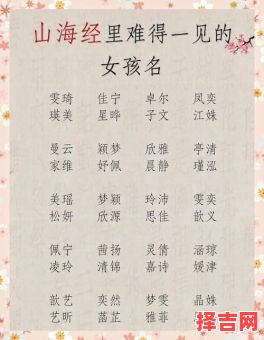 山海经里难得一见的
女孩名
雯琦 佳宁 卓尔 凤奕
瑛美 星晔 子文 江姝
曼云 颖梦 欣雅 亭清
家维 妤佩 晨静 瑾泓
美瑶 梦颖 玲沛 雯奕
松妍 欣源 思佳 歆义
佩宁 茜扬 灵倩 涵琼
凌玲 清锦 嘉诗 媛津
歆艺 奕然 梦雯 晶姝
艺昕 菡芷 雅菲
择吉网